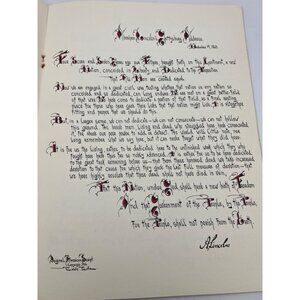 Abraham Lincoln's Gettysburg Address
November 19, 1863
Four Score and Seven years ago our Fathers brought forth on this Continent, a new
Nation, conceived in Liberty, and Dedicated to the Proposition
that All Men are created equal.
Now we are engaged in a great civil war, testing whether that nation or any nation so
conceived and so dedicated, can long endure. We are met on a great battle field
of that war. We have come to dedicate a portion of that field, as a final resting
place for those who here gave their lives that that nation might live. It is altogether
fitting and proper that we should do this.
But, in a larger sense, we can not dedicate—we can not consecrate—we can not hallow
this ground. The brave men, living and dead, who struggled here, have consecrated
it, far above our poor power to add or detract. The world will little note, nor
long remember what we say here, but it can never forget what they did here.
It is for us the living, rather, to be dedicated here to the unfinished work which they who
fought here have thus far so nobly advanced. It is rather for us to be here dedicated to the
great task remaining before us—that from these honored dead we take increased
devotion to that cause for which they gave the last full measure of devotion—that
we here highly resolve that these dead shall not have died in vain—
that this Nation, under God, shall have a new birth of Freedom
And that Government of the People, by the People,
For the People, shall not perish from the Earth.
A. Lincoln